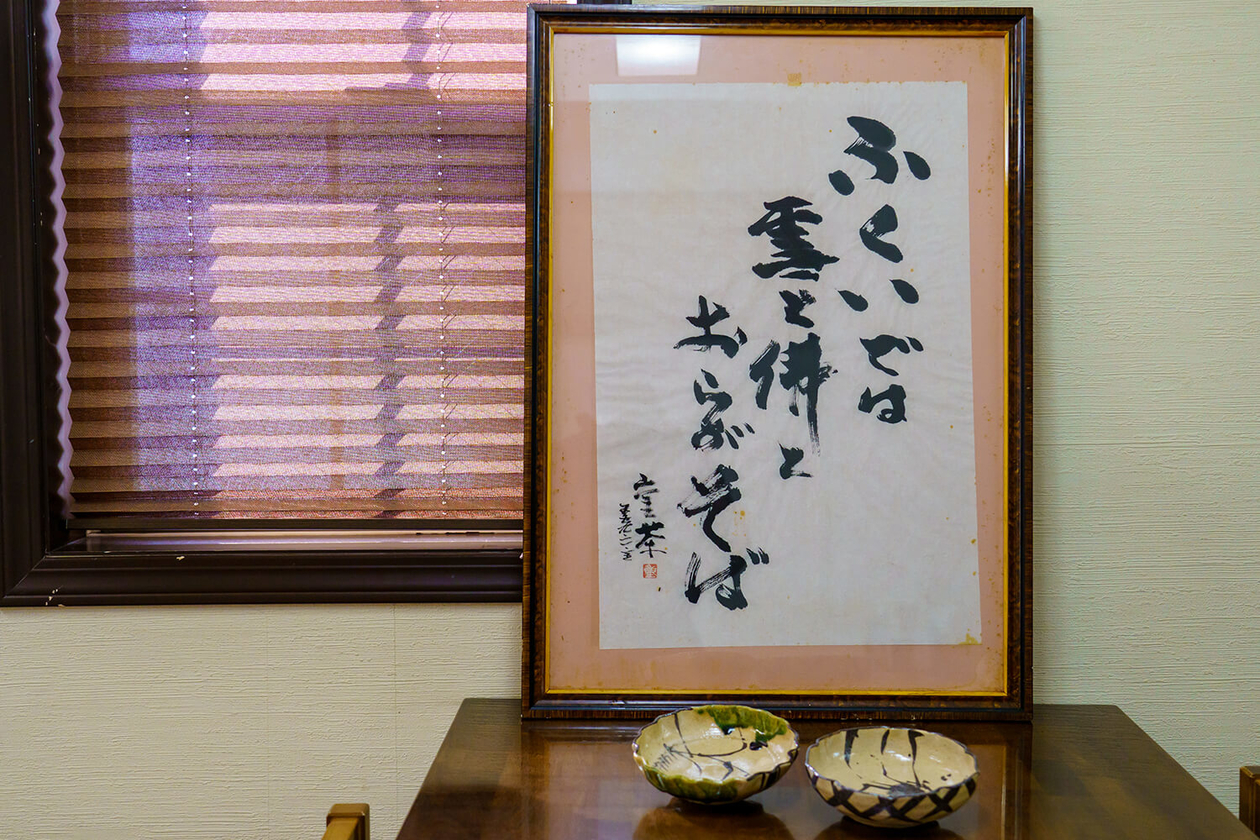 ふくいでは
雪と佛と
おらがそば